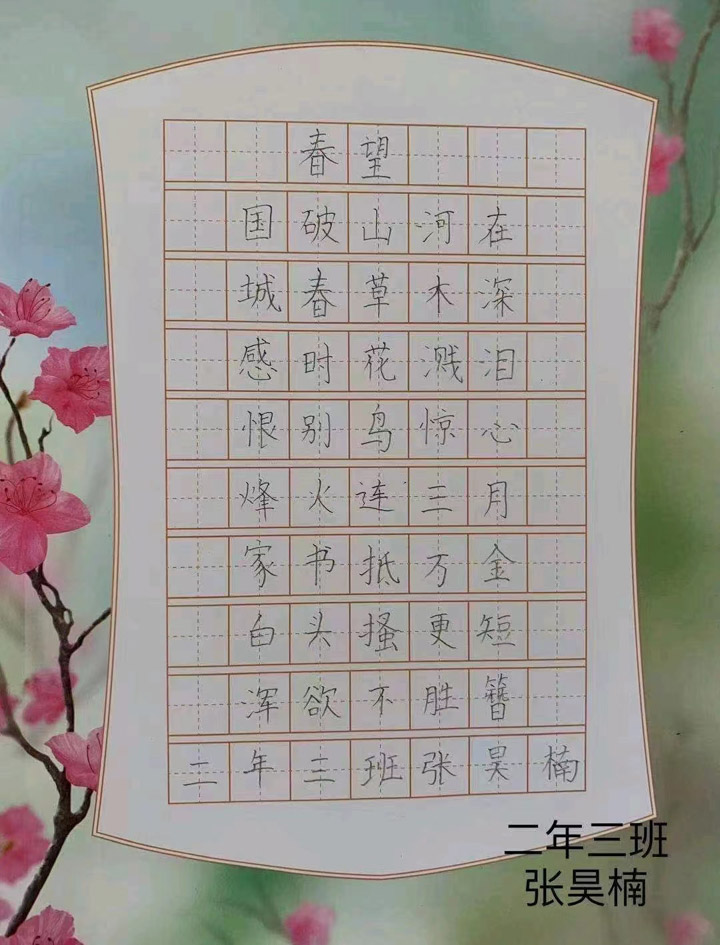 春望
国破山河在
城春草木深
感时花溅泪
恨别鸟惊心
烽火连三月
家书抵万金
白头搔更短
浑欲不胜簪
二年三班张昊楠
二年三班
张昊楠